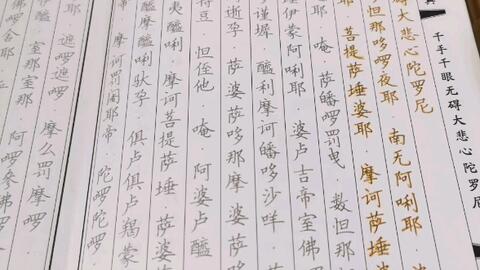 千手千眼无碍大悲心陀罗尼
碍大悲心陀罗尼
怛那哆啰夜耶 南无阿唎耶·
耶·菩提萨埵婆耶·摩诃萨埵婆
耶 唵 萨皤啰罚曳 数怛那
埵伊蒙阿唎耶·婆卢吉帝室佛
谨墀·醯利摩诃皤哆沙咩·
逝孕·萨婆萨哆那摩婆萨
特豆 怛侄他 唵 阿婆卢醯
夷醯唎·摩诃菩提萨埵 萨婆
摩醯唎驮孕·俱卢俱卢羯蒙
摩诃罚阇耶帝·陀啰陀啰
遮啰遮啰·摩么罚摩啰
室那室那 阿啰参佛啰
佛啰舍耶